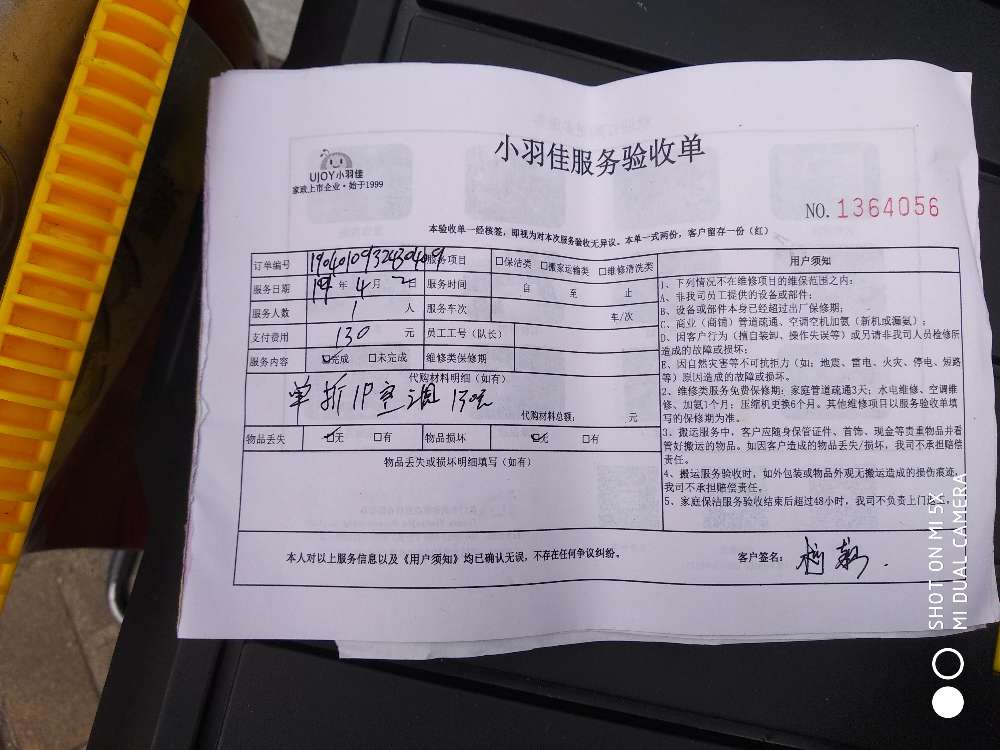 UJOY小羽佳
家政上市企业·始于1999
小羽佳服务验收单
NO. 1364056
本验收单一经核签，即视为对本次服务验收无异议。本单一式两份，客户留存一份（红）
订单编号 服务项目 □保洁类 □搬家运输类 □维修清洗类
服务日期 19年 4月 2日 服务时间 自 至 止
服务人数 1 人 服务车次 车/次
支付费用 130 元 员工工号（队长）
服务内容 ☑完成 □未完成 维修类保修期
代购材料明细（如有）
单拆1P空调 130元
代购材料总额： 元
物品丢失 ☑无 □有 物品损坏 ☑无 □有
物品丢失或损坏明细填写（如有）
用户须知
1、下列情况不在维修项目的维保范围之内：
A、非我司员工提供的设备或部件；
B、设备或部件本身已经超过出厂保修期；
C、商业（商铺）管道疏通、空调空机加氨（新机或漏氨）；
D、因客户行为（擅自装卸、操作失误等）或另请非我司人员检修所
造成的故障或损坏；
E、因自然灾害等不可抗拒力（如：地震、雷电、火灾、停电、短路
等）原因造成的故障或损坏。
2、维修类服务免费保修期：家庭管道疏通3天；水电维修、空调维
修、加氨1个月；压缩机更换6个月。其他维修项目以服务验收单填
写的保修期为准。
3、搬运服务中，客户应随身保管证件、首饰、现金等贵重物品并看
管好搬运的物品。如因客户造成的物品丢失/损坏，我司不承担赔偿
责任。
4、搬运服务验收时，如外包装或物品外观无搬运造成的损伤痕迹，
我司不承担赔偿责任。
5、家庭保洁服务验收结束后超过48小时，我司不负责上门返工。
本人对以上服务信息以及《用户须知》均已确认无误，不存在任何争议纠纷。
客户签名：
SHOT ON MI 5X
MI DUAL CAMERA